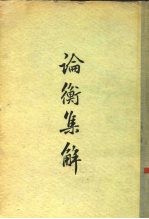 論衡集解